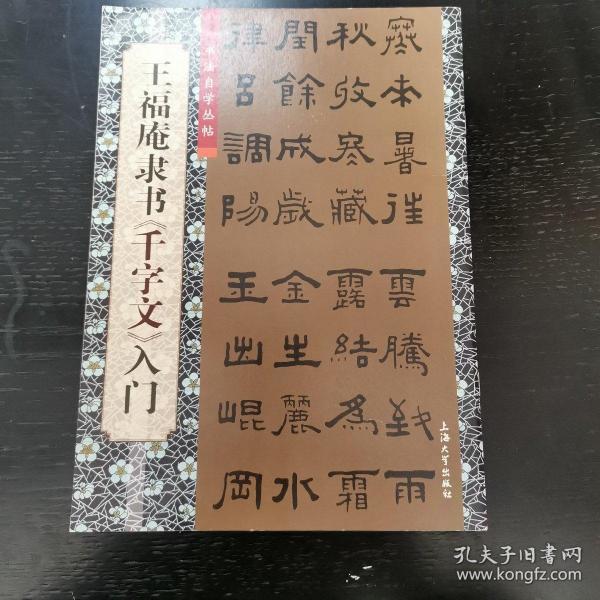 王福庵隶书《千字文》入门
书法自学丛帖
寒來暑往雲騰致雨
秋收冬藏露結爲霜
閏餘成歲金生麗水
律呂調陽玉出崐岡
上海大学出版社
孔夫子旧书网
www.kongfz.com